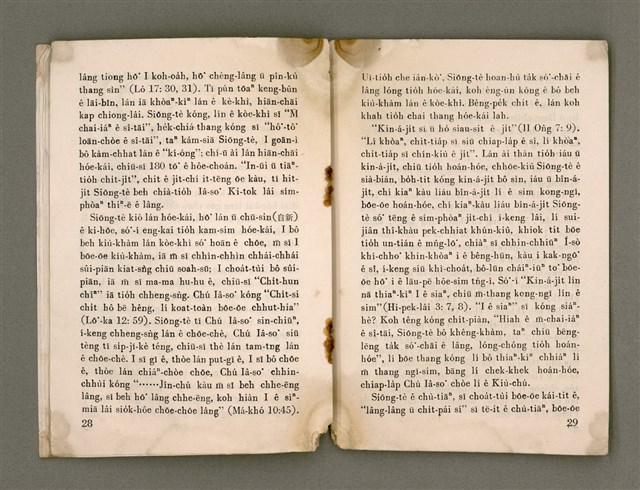 lâng tiong hō͘ I koh-oa̍h, hō͘ chèng-lâng ū pîn-kù
thang sìn” (Lō͘ 17: 30, 31). Tī pún tōaⁿ keng-bûn
ê lāi-bīn, lán iā khòaⁿ-kìⁿ lán ê kè-khì, hiān-chāi
kap chiong-lâi. Siōng-tè kóng, lín ê kòe-khì sī “M̄
chai-iáⁿ ê sî-tāi”, hek-chiá thang kóng sī “hô͘-tô͘
loān-chòe ê sî-tāi”, taⁿ kám-siā Siōng-tè, I goān-ì
bô kàm-chhat lán ê “kì-óng”; chí-ū ài lán hiān-chāi
hóe-kái, chiū-sī 180 tō͘ ê hôe-choán. “In-ūi ū tiāⁿ-
tio̍h chit-ji̍t”, chit ê ji̍t-chí it-tēng ōe kàu, tī hit-
ji̍t Siōng-tè beh chià-tio̍h Iâ-so͘ Ki-tok lâi sím-
phòaⁿ thiⁿ-ē ê lâng.
Siōng-tè kiò lán hóe-kái, hō͘ lán ū chū-sin(自新)
ê ki-hōe, só͘-í eng-kai tio̍h kam-sim hóe-kái, I bô
beh kiù-khàm lán kòe-khì só͘ hoān ê chōe, m̄ sī I
bōe-ōe kiù-khàm, iā m̄ sī chhìn-chhìn chhái-chhái
sûi-piān kiat-sǹg chiū soah-sū; I choa̍t-tùi bô sûi-
piān, iā m̄ sī ma-ma hu-hu ê, chiū-sī “Chi̍t-hun
chîⁿ” iā tio̍h chheng-sǹg. Chú Iâ-so͘ kóng “Chi̍t-si
chi̍t hô bē hêng, lí koat-toàn bōe-ōe chhut-hia”
(Lō͘-ka 12: 59). Siōng-tè tī Chú Iâ-so͘ sin-chiūⁿ,
í-keng chheng-sǹg lán ê chōe-chè, Chú Iâ-so͘ siū
tèng tī si̍p-jī-kè téng, chiū-sī thè lán tam-tng lán
ê chōe-chè. I sī gī ê, thòe lán put-gī ê, I sī bô chōe
ê, thòe lán chiâⁿ-chòe chōe, Chú Iâ-so͘ chhin-
chhùi kóng “······Jîn-chú kàu m̄ sī beh chhe-ēng
lâng, sī beh hō͘ lâng chhe-ēng, koh hiàn I ê sìⁿ-
miā lâi sio̍k-hôe chōe-chōe lâng” (Má-khó 10:45).
28
Ui-tio̍h che iân-kò͘, Siōng-tè hoan-hù ta̍k só͘-chāi ê
lâng lóng tio̍h hóe-kái, koh èng-ún kóng ē bô beh
kiù-khàm lán ê kòe-khì. Bêng-pe̍k chit ê, lán koh
khah tio̍h chai thang hóe-kái lah.
“Kin-á-ji̍t sī ū hō siau-sit ê ji̍t”(II Ông 7: 9).
“Lí khòaⁿ, chit-tia̍p sī siū chiap-la̍p ê sî, lí khòaⁿ,
chit-tia̍p sī chín-kiù ê ji̍t”. Lán ài thàn tio̍h iáu ū
kin-á-ji̍t, chiū tio̍h hoán-hóe, chhōe-kiû Siōng-tè ê
sià-bián, bo̍h-tit kóng kin-á-ji̍t bô sim, iáu ū bîn-á-
ji̍t, chí kiaⁿ kàu liáu bîn-á-ji̍t lí ê sim kong-ngī,
bōe-ōe hoán-hóe, chí kiaⁿ-kàu liáu bîn-á-ji̍t Siōng-
tè só͘ tēng ê sím-phòaⁿ ji̍t-chí í-keng lâi, lí sui-
jiân thî-khàu pek-chhiat khún-kiû, khiok tit bōe
tio̍h un-tián ê mn̂g-lō͘, chiàⁿ sī chhin-chhiūⁿ Í-sò
khì-chho͘ khin-khòaⁿ i ê bêng-hūn, kàu i kak-ngō͘
ê sî, í-keng siu khì-choa̍t, bô-lūn chāiⁿ-iūⁿ to͘ bōe-
ōe hō͘ i ê lāu-pē hôe-sim tńg-ì. Só͘-í “Kin-á-ji̍t lín
nā thiaⁿ-kìⁿ I ê siaⁿ, chiū m̄-thang keng-ngī lín ê
sim”(Hi-pek-lâi 3: 7, 8). “I ê siaⁿ” sī kóng siáⁿ-
hè? Koh têng kóng chi̍t-piàn, “Hiah ê m̄-chai-iáⁿ
ê sî-tāi, Siōng-tè bô khêng-khàm, taⁿ chiū bēng-
lēng ta̍k só͘-chāi ê lâng, lóng-chóng tio̍h hoán-
hóe”, lí bōe thang kóng lí bô thiaⁿ-kìⁿ chhiáⁿ lí
m̄ thang ngî-sim, bāng lí chek-khek hoán-hóe,
chiap-la̍p Chú Iâ-so͘ chòe lí ê Kiù-chú.
Siōng-tè ê chú-tiāⁿ, sī choa̍t-tùi bōe-ōe kái-tit ê,
“lâng-lâng ū chi̍t-pái sí” sī tē-it ê chú-tiāⁿ, bōe-ōe
29